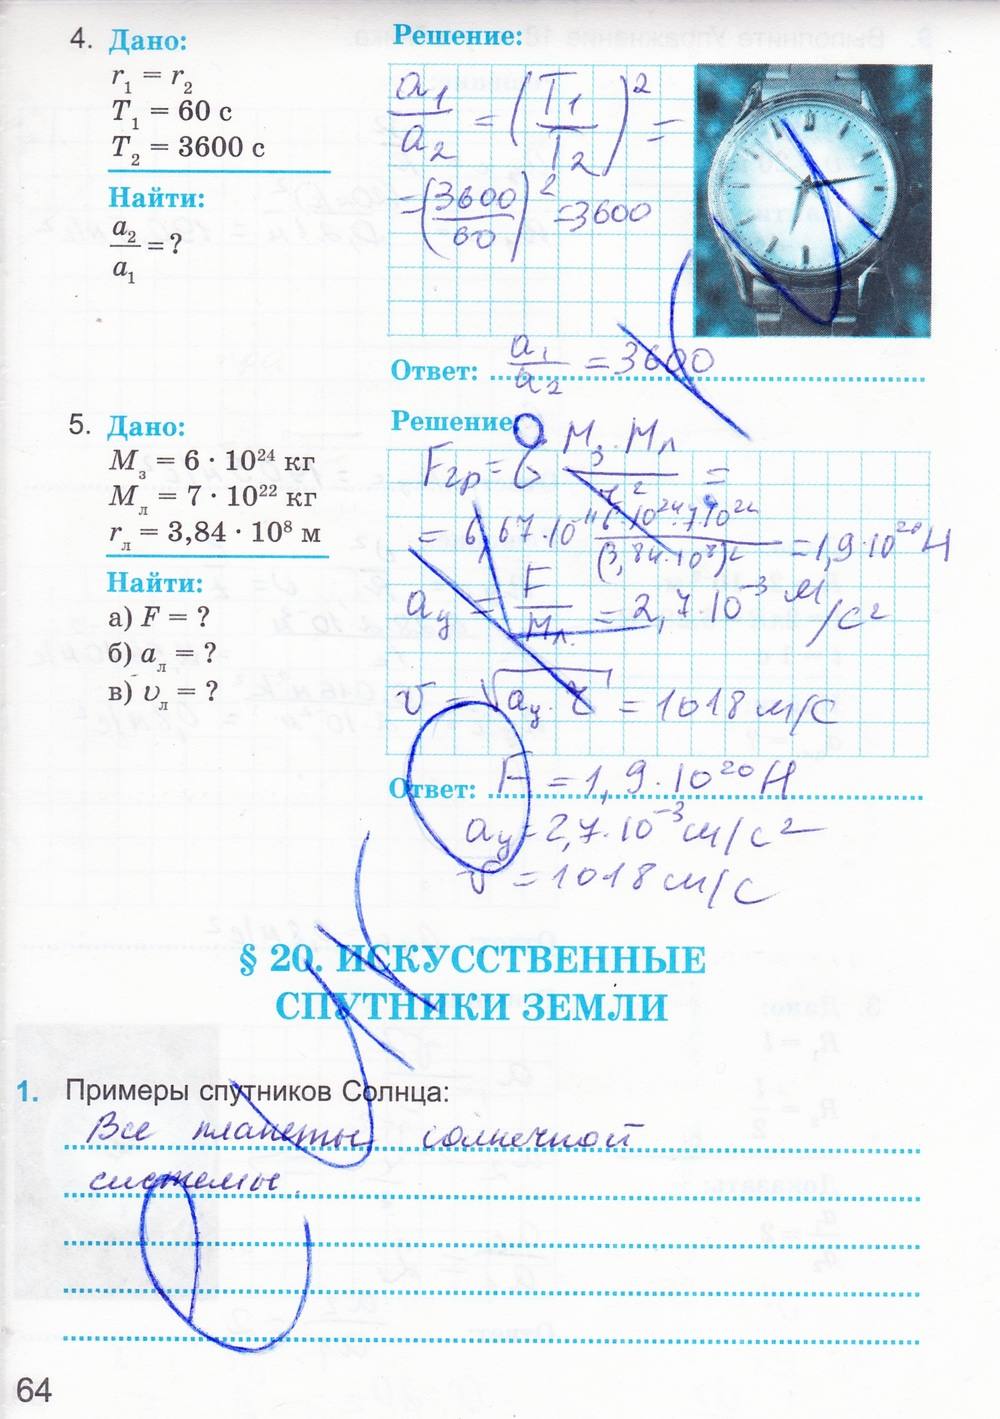 4. Дано:
r₁ = r₂
T₁ = 60 с
T₂ = 3600 с
Найти:
a₂/a₁ = ?
Решение:
a₁/a₂ = (T₁/T₂)² =
= (3600/60)² = 3600
Ответ: a₁/a₂ = 3600
5. Дано:
Mз = 6 · 10²⁴ кг
Mл = 7 · 10²² кг
rл = 3,84 · 10⁸ м
Найти:
а) F = ?
б) aл = ?
в) υл = ?
Решение:
Fгр = G Mз · Mл / r² =
= 6,67 · 10⁻¹¹ 6·10²⁴·7·10²² / (3,84·10⁸)² = 1,9·10²⁰ Н
aц = F/Mл = 2,7·10⁻³ м/с²
v = √aц · r = 1018 м/с
Ответ: F = 1,9·10²⁰ Н
aц = 2,7·10⁻³ м/с²
v = 1018 м/с
§ 20. ИСКУССТВЕННЫЕ
СПУТНИКИ ЗЕМЛИ
1. Примеры спутников Солнца:
Все планеты солнечной
системы.
64